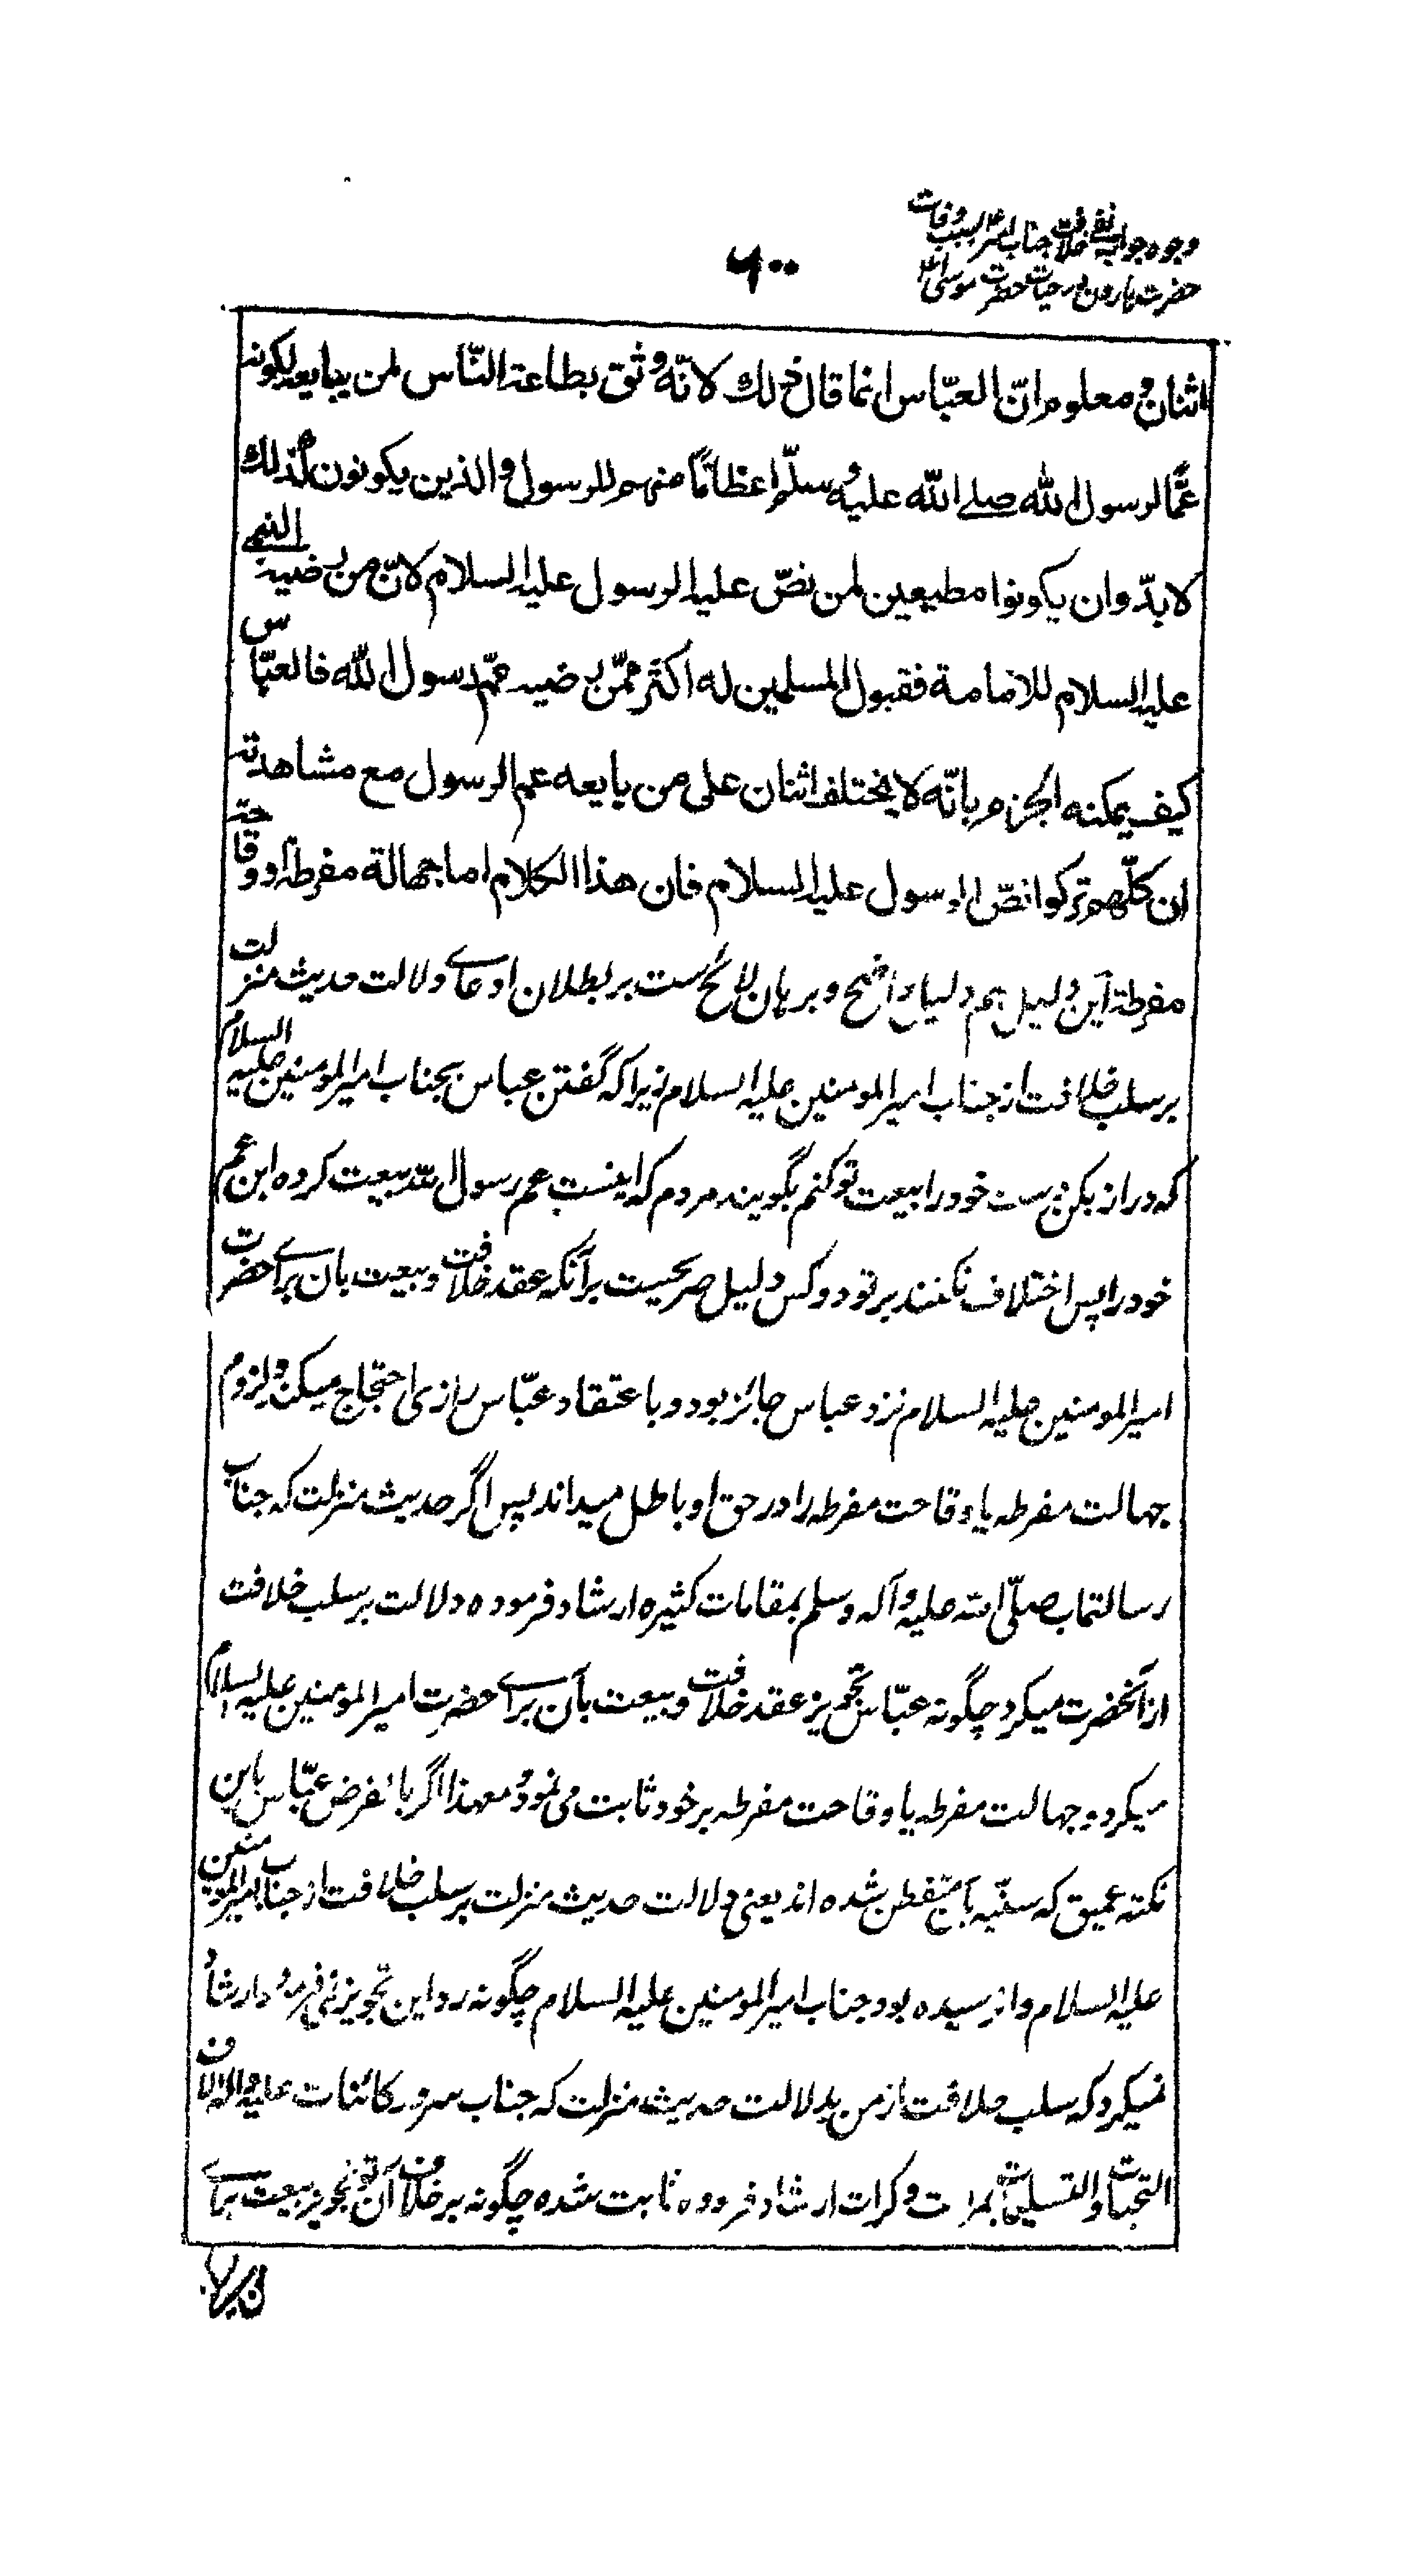 وجوه جواب نفی خلافت جناب امیرؑ بسبب وفات
حضرت هارون در حیات حضرت موسیؑ
۶۰۰
اثنان و معلوم انّ العبّاس انما قال ذلك لانّه وثق بطاعة النّاس لمن یبایعه لکونه
عمًّا لرسول الله صلے الله علیه و سلّم اعظامًا منهم للرسول و الذین یکونون کذلك
لا بدّ و ان یکونوا مطیعین لمن نصّ علیه الرسول علیه السلام لانّ من یرضیه النبی
علیه السلام للامامة فقبول المسلمین له اکثر ممّن یرضیه عمّ رسول الله فالعبّاس
کیف یمکنه الجزم بانّه لا یختلف اثنان علی من بایعه عم الرسول مع مشاهدته
ان کلّهم ترکوا نصّ الرسول علیه السلام فان هذا الکلام اما جهالة مفرطة او وقاحة
مفرطة این دلیل هم دلیل واضح و برهان لائح ست بر بطلان ادعاے دلالت حدیث منزلت
بر سلب خلافت از جناب امیر المومنین علیه السلام زیرا که گفتن عباس بجناب امیر المومنین علیه السلام
که دراز بکن دست خود را بیعت تو کنم بگویند مردم که اینست عم رسول الله بیعت کرده ابن عم
خود را پس اختلاف نکنند بر تو دو کس دلیل صریحست بر آنکه عقد خلافت و بیعت بان براے حضرت
امیر المومنین علیه السلام نزد عباس جائز بود و با عتقاد عبّاس رازی احتجاج میکند و لزوم
جهالت مفرطه یا وقاحت مفرطه را در حق او باطل میداند پس اگر حدیث منزلت که جناب
رسالتماب صلّی الله علیه و آله و سلم بمقامات کثیره ارشاد فرموده دلالت بر سلب خلافت
از آنحضرت میکرد چگونه عبّاس تجویز عقد خلافت و بیعت بآن براے حضرت امیر المومنین علیه السلام
میکرد و جهالت مفرطه یا وقاحت مفرطه بر خود ثابت می نمود و معهذا اگر بالفرض عبّاس باین
نکته عمیق که سنّیه بآن متفطن شده اند یعنی دلالت حدیث منزلت بر سلب خلافت از جناب امیر المومنین
علیه السلام وا نرسیده بود جناب امیر المومنین علیه السلام چگونه رد این تجویز نمی فرمود و ارشاد
نمیکرد که سلب خلافت از من بدلالت حدیث منزلت که جناب سرور کائنات علیه و اله الاف
التحیات و التسلیمات بمرات و کرات ارشاد فرموده ثابت شده چگونه بر خلاف آن تو تجویز بیعت براے